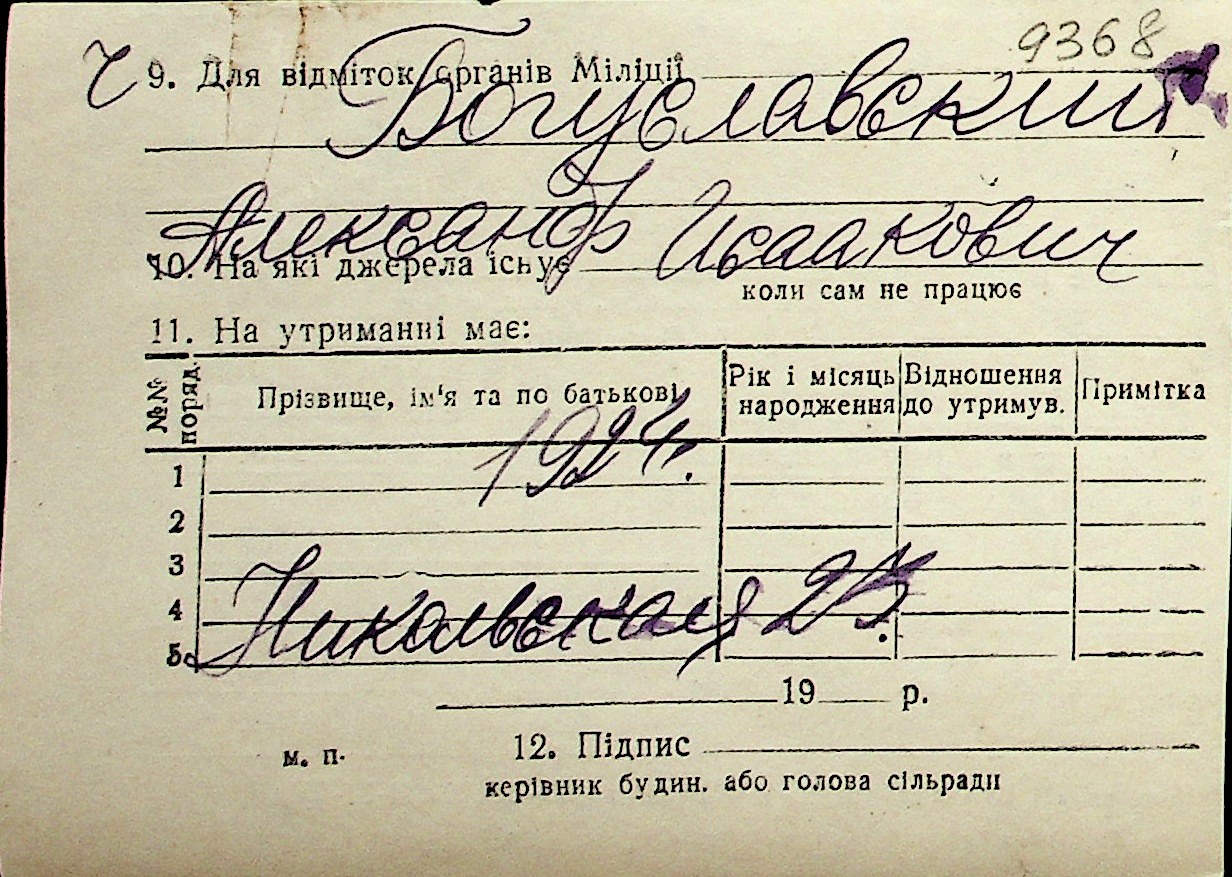 9368
ч 9. Для відміток органів Міліції
Богуславский
Александр Исаакович
10. На які джерела існує
коли сам не працює
11. На утриманні має:
№№ поряд. Прізвище, ім'я та по батькові Рік і місяць народження Відношення до утримув. Примітка
1924.
1
2
3
4
5.
Никольская 25.
19 р.
м. п. 12. Підпис
керівник будин. або голова сільради